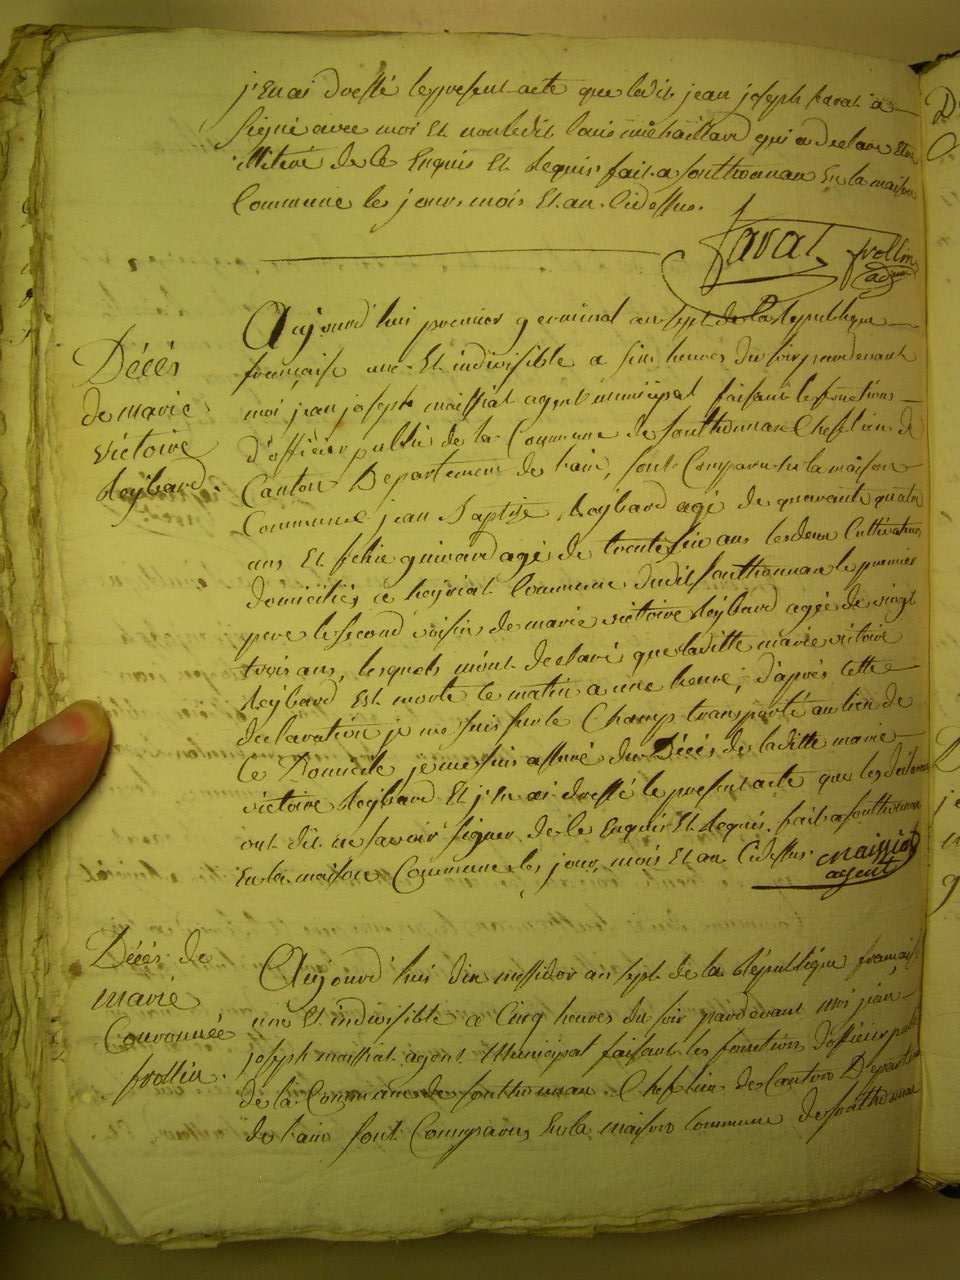 j'En ai dressé le present acte que ledit jean joseph savat a
signé avec moi Et non ledit Louis qui a declaré Etre
illitéré de le Enquis Et Requis fait a sonthonnax En la maison
Commune les jour, mois Et an Cidessus.
savat
frollin
adj
Décés
de marie
victoire
Reybard.
Aujourd'hui premier germinal an sept de la République
française une Et indivisible a six heures du soir pardevant
moi jean joseph maissiat agent municipal faisant les fonctions
d'officier public de la Commune de sonthonnax Cheflieu de
Canton Departement de l'ain, sont Comparu En la maison
Commune jean Baptiste Reybard agé de quarante quatre
ans Et felix guinard agé de trente six ans les deux Cultivateurs
domiciliés a heyriat Commune dudit sonthonnax le premier
pere le second voisin de marie victoire Reybard agée de vingt
trois ans, lesquels m'ont declaré que laditte marie victoire
Reybard Est morte le matin a une heure, d'aprés cette
declaration je me suis sur le Champ transporté au lieu de
Ce Domicile je me suis assuré du Décés de laditte marie
victoire Reybard Et j'En ai dressé le present acte que les
ont dit ne savoir signer de le Enquis Et Requis. fait a sonthonnax
En la maison Commune les jour, mois Et an Cidessus.
maissiat
agent
Décés de
marie
Couronnée
frollin.
Aujourd'hui dix messidor an sept de la République française
une Et indivisible a Cinq heures du soir pardevant moi jean
joseph maissiat agent Municipal faisant les fonctions d'officier public
de la Commune de sonthonnax Cheflieu de Canton Departement
de l'ain sont Comparus En la maison Commune de sonthonnax